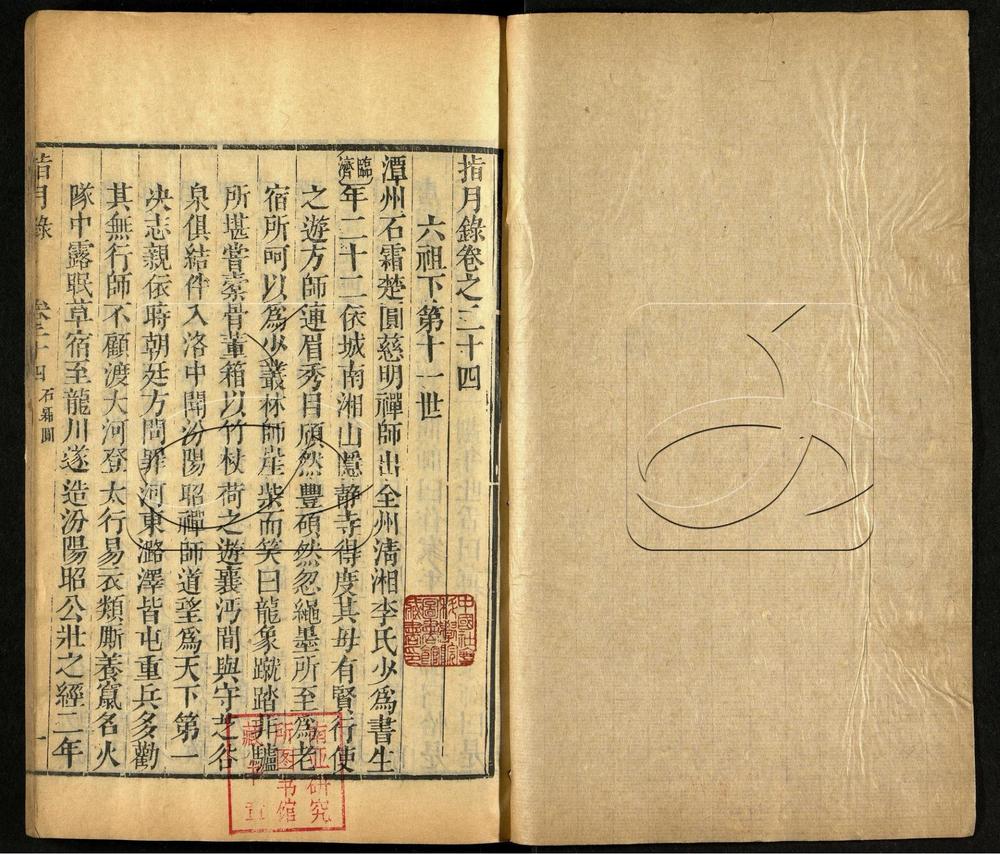 指月錄卷之二十四
六祖下第十一世
潭州石霜楚圓慈明禪師出全州清湘李氏少爲書生
臨濟
年二十二依城南湘山隱靜寺得度其母有賢行使
之遊方師連眉秀目頎然豐碩然忽繩墨所至爲老
宿所呵以爲少叢林師崖柴而笑曰龍象蹴踏非驢
所堪嘗橐骨董箱以竹杖荷之遊襄沔間與守芝谷
泉俱結伴入洛中聞汾陽昭禪師道望爲天下第一
決志親依時朝廷方問罪河東潞澤皆屯重兵多勸
其無行師不顧渡大河登太行易衣類厮養竄名火
隊中露眠草宿至龍川遂造汾陽昭公壯之經二年
指月錄
卷二十四
石霜圓
一
中國社會
科學院
圖書館
藏書印
南亚研究
所图书馆
藏书章